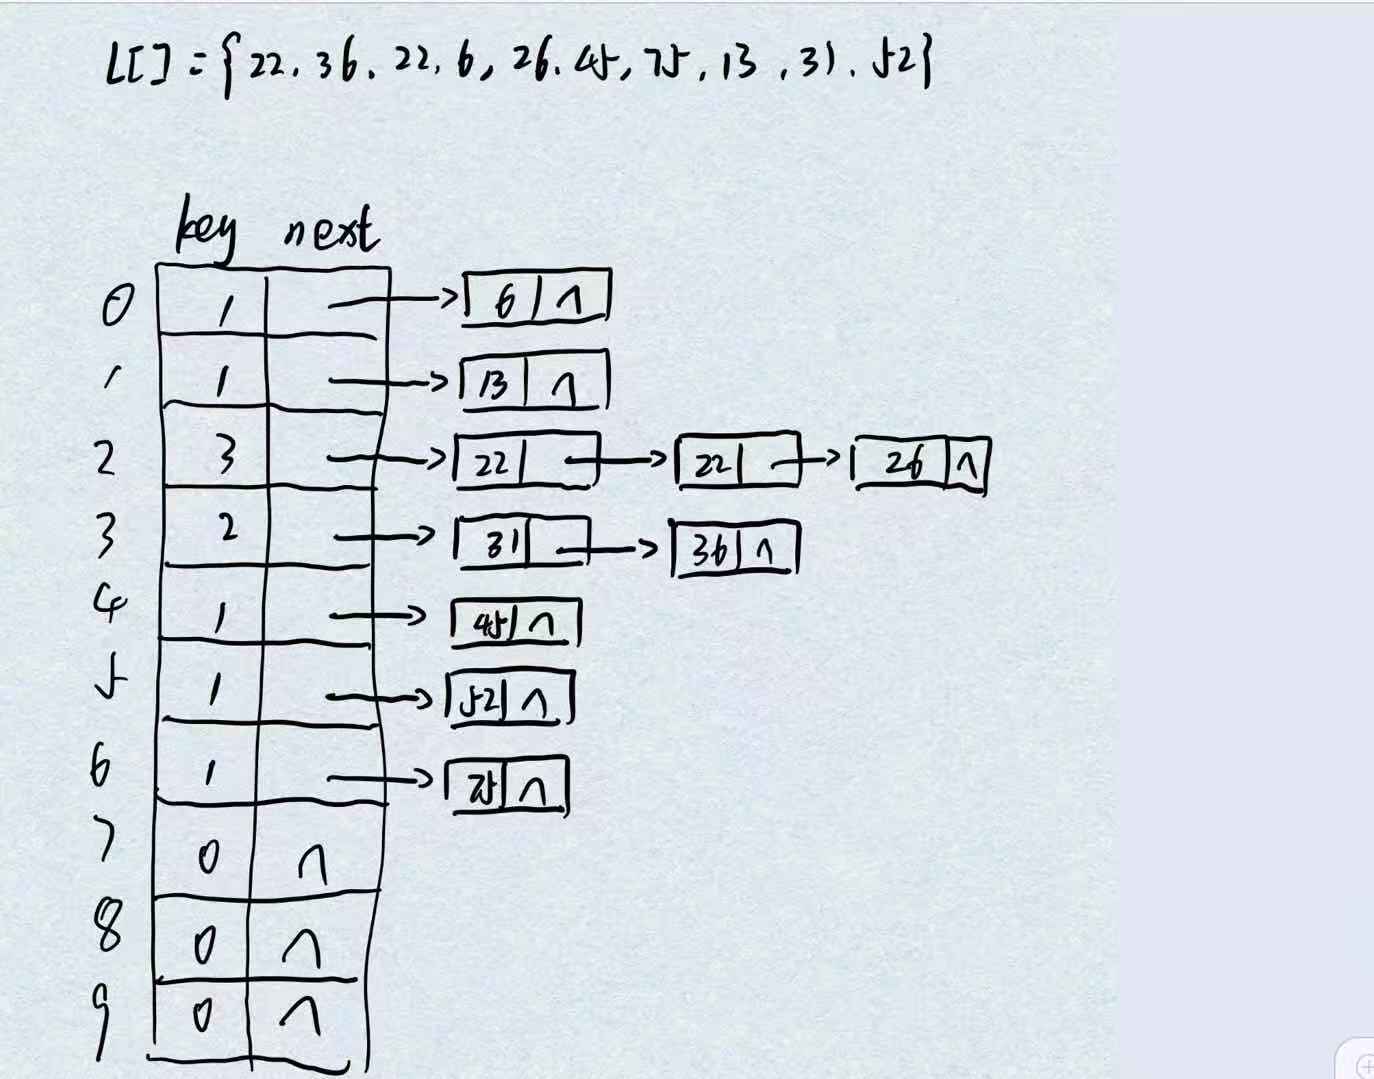 L[]={22. 36. 22. 6, 26. 45, 75, 13, 31. 52}
key next
0 1 → 6 ∧
1 1 → 13 ∧
2 3 → 22 → 22 → 26 ∧
3 2 → 31 → 36 ∧
4 1 → 45 ∧
5 1 → 52 ∧
6 1 → 75 ∧
7 0 ∧
8 0 ∧
9 0 ∧